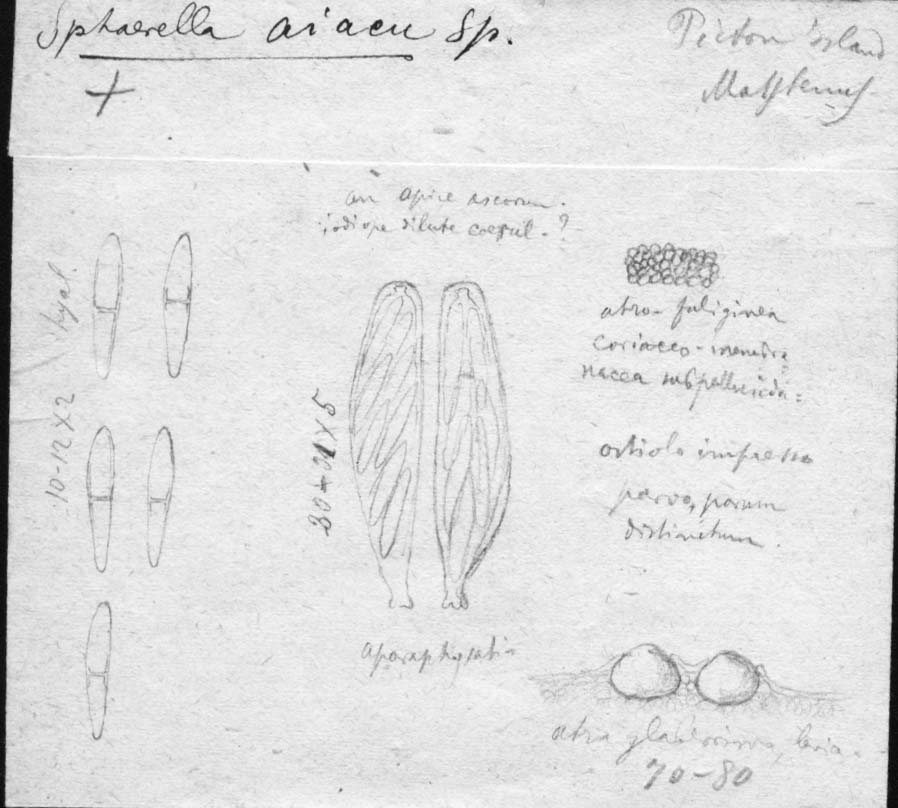 Sphaerella aiacu Sp.
Picton Island
+
an apice ascorum
iodi ope dilute coerul-?
hyal.
10-12X2
30-31X5
atro-fuliginea
coriaceo-membra=
nacea subpellucida=
ostiolo impresso
parvo, parum
distinctum.
aparaphysati
atra glaberrima, levia
70-80